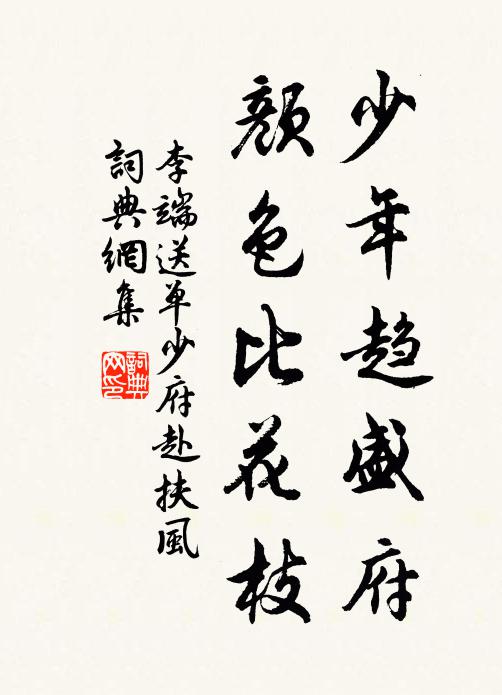 少年趋盛府
颜色比花枝
李端送单少府赴扶風
詞典網集
詞典网印